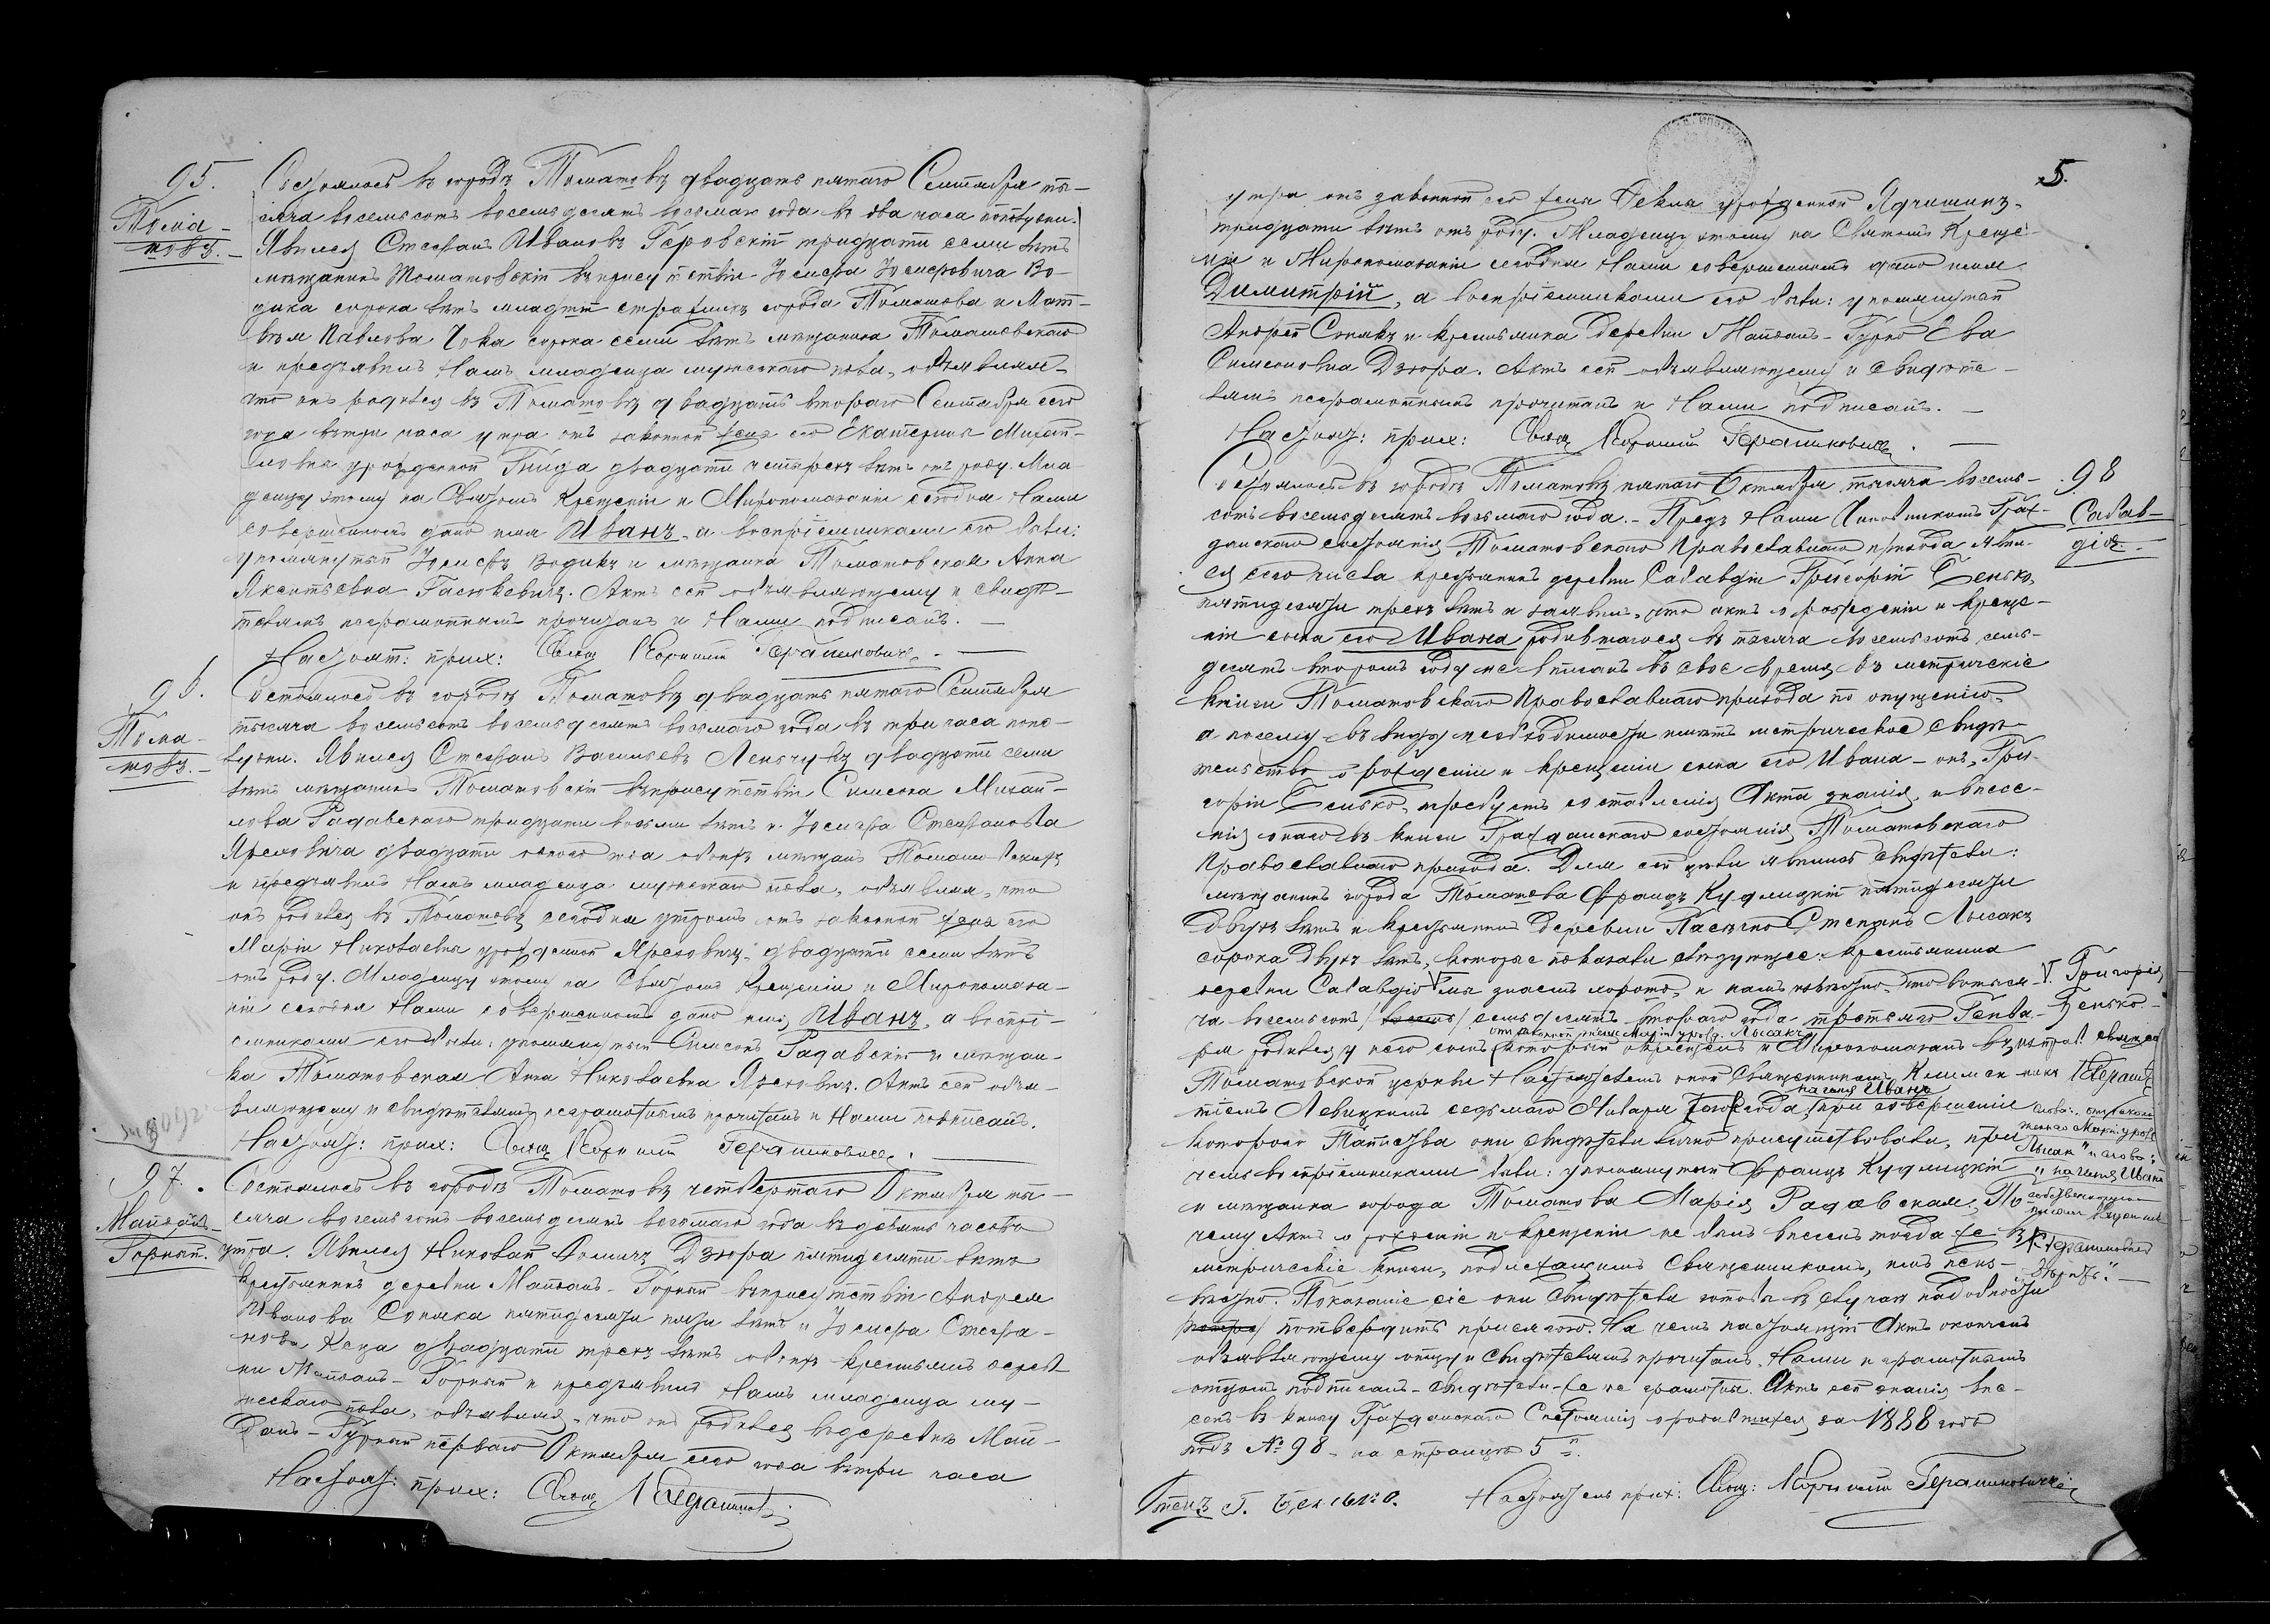 95.
Тома-
шовъ.
Состоялось въ городѣ Томашовѣ двадцать пятаго Сентября ты-
сяча восемьсотъ восемьдесятъ восьмаго года въ два часа пополудни.
Явился Стефанъ Ивановъ Геровскій тридцати семи лѣтъ
мѣщанинъ Томашовскій въ присутствіи Іосифа Іосифовича Во-
дика сорока лѣтъ младшій стражникъ города Томашова и Мат-
вѣя Павлова сорока семи лѣтъ мѣщанина Томашовскаго
и предъявилъ Намъ младенца мужескаго пола, объявляя,
что онъ родился въ Томашовѣ двадцать втораго Сентября сего
года въ три часа утра отъ законной жены его Екатерины Михай-
ловны урожденной Гнида двадцати четырехъ лѣтъ отъ роду. Мла-
денцу этому на Святомъ Крещеніи и Миропомазаніи сегодня Нами
совершенномъ дано имя Иванъ, а воспріемниками его были:
упомянутый Іосифъ Водикъ и мѣщанка Томашовская Анна
Гасюкевичъ. Актъ сей объявляющему и свидѣ-
телямъ неграмотнымъ прочитанъ и Нами подписанъ.
Настоят: прих: Свящ Корнилій Герашиковичъ.
96.
Тома-
шовъ.
Состоялось въ городѣ Томашовѣ двадцать пятаго Сентября
тысяча восемьсотъ восемьдесятъ восьмаго года въ три часа попо-
лудни. Явился Стефанъ Васильевъ двадцати семи
лѣтъ мѣщанинъ Томашовскій въ присутствіи Симеона Михай-
лова Радавскаго тридцати восьми лѣтъ и Іосифа Стефанова
Яремовича двадцати одного года обоихъ мѣщанъ Томашовскихъ
и предъявилъ Намъ младенца мужескаго пола, объявляя, что
онъ родился въ Томашовѣ сегодня утромъ отъ законной жены его
Маріи Николаевны урожденной Яремовичъ двадцати семи лѣтъ
отъ роду. Младенцу этому на Святомъ Крещеніи и Миропомаза-
ніи сегодня Нами совершенномъ дано имя Иванъ, а воспрі-
емниками его были: упомянутый Симеонъ Радавскій и мѣщан-
ка Томашовская Анна Николаевна Яремовичъ. Актъ сей объя-
вляющему и свидѣтелямъ неграмотнымъ прочитанъ и Нами подписанъ.
Настоят: прих: Свящ Корнилій Герашиковичъ.
97.
Майданъ-
Горный.
Состоялось въ городѣ Томашовѣ четвертаго Октября ты-
сяча восемьсотъ восемьдесятъ восьмаго года въ девять часовъ
утра. Явился Николай Дзюра пятидесяти лѣтъ
крестьянинъ деревни Майданъ-Горный въ присутствіи Андрея
Иванова Сопяка пятидесяти пяти лѣтъ и Іосифа Стефа-
нова двадцати трехъ лѣтъ обоихъ крестьянъ дерев-
ни Майданъ-Горный и предъявилъ Намъ младенца му-
жескаго пола, объявляя, что онъ родился въ деревнѣ Май-
данъ-Гурный перваго Октября сего года въ три часа
Настоят: прих: Свящ К Герашиков
5.
утра отъ законной его жены Феклы урожденной
тридцати лѣтъ отъ роду. Младенцу этому на Святомъ Креще-
ніи и Миропомазаніи сегодня Нами совершенномъ дано имя
Димитрій, а воспріемниками его были: упомянутый
Андрей Сопякъ и крестьянка деревни Майданъ-Гурно Ева
Симеоновна Дзюра. Актъ сей объявляющему и свидѣте-
лямъ неграмотнымъ прочитанъ и Нами подписанъ.
Настоят: прих: Свящ Корнилій Герашиковичъ.
98
Сабав-
діе.
Состоялось въ городѣ Томашовѣ пятаго Октября тысяча восемь-
сотъ восемьдесятъ восьмаго года. Предъ Нами Чиновникомъ Граж-
данскаго состоянія Томашовскаго Православнаго прихода явил-
ся сего числа крестьянинъ деревни Григорій Бенько,
пятидесяти трехъ лѣтъ и заявилъ, что актъ о рожденіи и креще-
ніи сына его Ивана родившагося въ тысяча восемьсотъ семь-
десятъ второмъ году не вписанъ въ свое время въ метрическіе
книги Томашовскаго Православнаго прихода по опущенію,
а посему въ виду необходимости имѣть метрическое свидѣ-
тельство о рожденіи и крещеніи сына его Ивана - онъ, Гри-
горій Бенько, требуетъ составленія Акта знанія, и внесе-
нія онаго въ книги Гражданскаго состоянія Томашовскаго
Православнаго прихода. Для сей цѣли явились свидѣтели:
мѣщанинъ города Томашова Францъ Кудлицкій пятидесяти
двухъ лѣтъ и крестьянинъ деревни Пасѣчно Степанъ Лысакъ
сорока двухъ лѣтъ, которые показали слѣдующее: крестьянина
деревни V мы знаемъ хорошо, и намъ извѣстно, что въ тыся-
V. Григорія
Бенько
ча восемьсотъ /восемь/ семьдесятъ втораго года третьяго Генва-
отъ законной жены Маріи урожд. Лысакъ
ря родился у него сынъ который окрещенъ и Миропомазанъ въ
Томашовской церкви Настоятелемъ оной Священникомъ Климен-
на имя Иванъ
тіемъ Левицкимъ седьмаго Января того года, при совершеніи
котораго Таинства они свидѣтели лично присутствовали, при
чемъ воспріемниками были: упомянутый Францъ Кудлицкій
и мѣщанка города Томашова Марія Радавская; По
чему Актъ о рожденіи и крещеніи не былъ внесенъ тогда же въ
метрическіе книги, подлежащимъ Священникомъ, имъ неиз-
вѣстно. Показаніе сіе они свидѣтели готовы въ случаѣ надобности
потвердить присягою. На чемъ настоящій Актъ оконченъ
объявляющему отцу и свидѣтелямъ прочитанъ, Нами и грамотнымъ
отцомъ подписанъ - свидѣтели-же не грамотны. Актъ сей знанія вне-
сенъ въ книгу Гражданскаго Состоянія о родившихся за 1888 годъ
подъ № 98 на страницѣ 5й.
Отецъ Г. Бенько.
Настоятель прих: Свящ: Корнилій Герашиковичъ